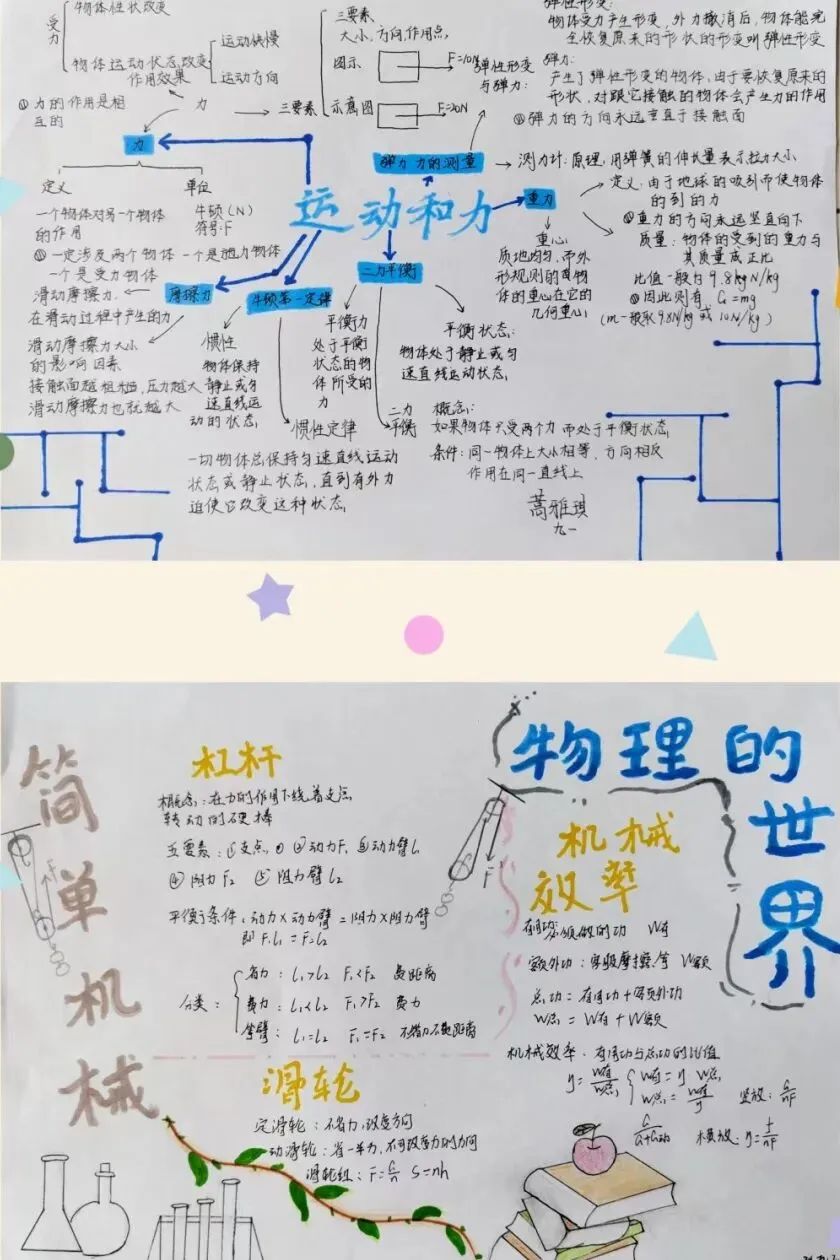 物体性状改变
受力
物体运动状态改变
运动快慢
运动方向
作用效果
①力的作用是相
互的
力
三要素
三要素
大小、方向、作用点
图示
F=10N
示意图
F=20N
弹性形变
与弹力:
弹性形变:
物体受力产生形变,外力撤消后,物体能完
全恢复原来的形状的形变叫弹性形变
弹力:
产生了弹性形变的物体,由于要恢复原来的
形状,对跟它接触的物体会产生力的作用
②弹力的方向永远垂直于接触面
力
弹力 力的测量
测力计:原理,用弹簧的伸长量表示拉力大小
定义
单位
一个物体对另一个物体
的作用
牛顿(N)
符号:F
①一定涉及两个物体 一个是施力物体
一个是受力物体
运动和力
重力
定义:由于地球的吸引而使物体
的到的力
①重力的方向永远竖直向下
质量:物体的受到的重力与
其质量成正比
比值一般为9.8kgN/kg
②因此则有 G=mg
(m一般取9.8N/kg或10N/kg)
重心:
质地均匀,而外
形规则的
体的重心在它的
几何重心
摩擦力
牛顿第一定律
二力平衡
滑动摩擦力.
在滑动过程中产生的力
滑动摩擦力大小
的影响因素
接触面越粗糙,压力越大
滑动摩擦力也就越大
惯性
物体保持
静止或匀
速直线运
动的状态
平衡力
处于平衡
状态的物
体所受的
力
平衡状态:
物体处于静止或匀
速直线运动状态
惯性定律
一切物体总保持匀速直线运动
状态或静止状态,直到有外力
迫使它改变这种状态
二力
平衡
概念:
如果物体只受两个力而处于平衡状态
条件:同一物体上大小相等,方向相反
作用在同一直线上
雅琪
九一
物理的世界
简单机械
杠杆
概念:在力的作用下绕着支点
转动的硬棒
五要素:①支点O ②动力F₁ ③动力臂l₁
④阻力F₂ ⑤阻力臂l₂
平衡条件:动力×动力臂=阻力×阻力臂
即F₁l₁=F₂l₂
分类:
省力:l₁>l₂ F₁<F₂ 费距离
费力:l₁<l₂ F₁>F₂ 费力
等臂:l₁=l₂ F₁=F₂ 不省力不费距离
F
F
滑轮
定滑轮:不省力,改变方向
动滑轮:省一半力,不可改变力的方向
滑轮组:F=G/n S=nh
机械
效率
有用功:必须做的功 W有
额外功:克服摩擦等 W额
总功=有用功+额外功
W总=W有+W额
机械效率:有用功与总功的比值
η=W有/W总 { W有=η W总 W总=W有/η
竖放:G/nF
G/G+G动
横放:η=f/nF